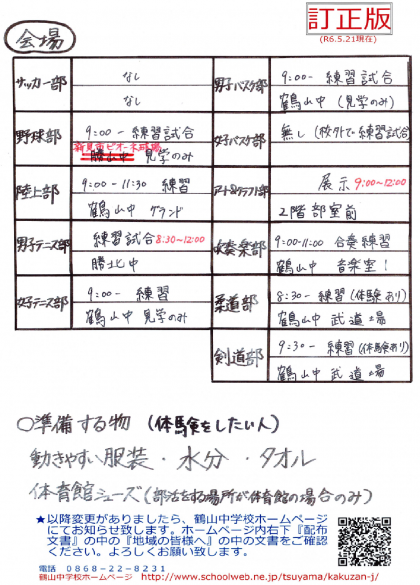 訂正版
(R6.5.21現在)
会場
サッカー部
なし
なし
野球部
9:00- 練習試合
新見市ピオーネ球場
勝山中 見学のみ
陸上部
9:00-11:30 練習
鶴山中 グランド
男子テニス部
練習試合8:30~12:00
勝北中
女子テニス部
9:00- 練習
鶴山中 見学のみ
男子バスケ部
9:00- 練習試合
鶴山中 (見学のみ)
女子バスケ部
無し (校外で練習試合)
アート&クラフト部
展示 9:00~12:00
2階部室前
吹奏楽部
9:00-11:00 合奏練習
鶴山中 音楽室1
柔道部
8:30- 練習(体験あり)
鶴山中 武道場
剣道部
9:30- 練習(体験あり)
鶴山中 武道場
○準備する物 (体験をしたい人)
動きやすい服装・水分・タオル
体育館シューズ(部活をする場所が体育館の場合のみ)
★以降変更がありましたら、鶴山中学校ホームページ
にてお知らせ致します。ホームページ内右下『配布
文書』の中の『地域の皆様へ』の中の文書をご確認
ください。よろしくお願い致します。
電話 0868-22-8231
鶴山中学校ホームページ http://www.schoolweb.ne.jp/tsuyama/kakuzan-j/